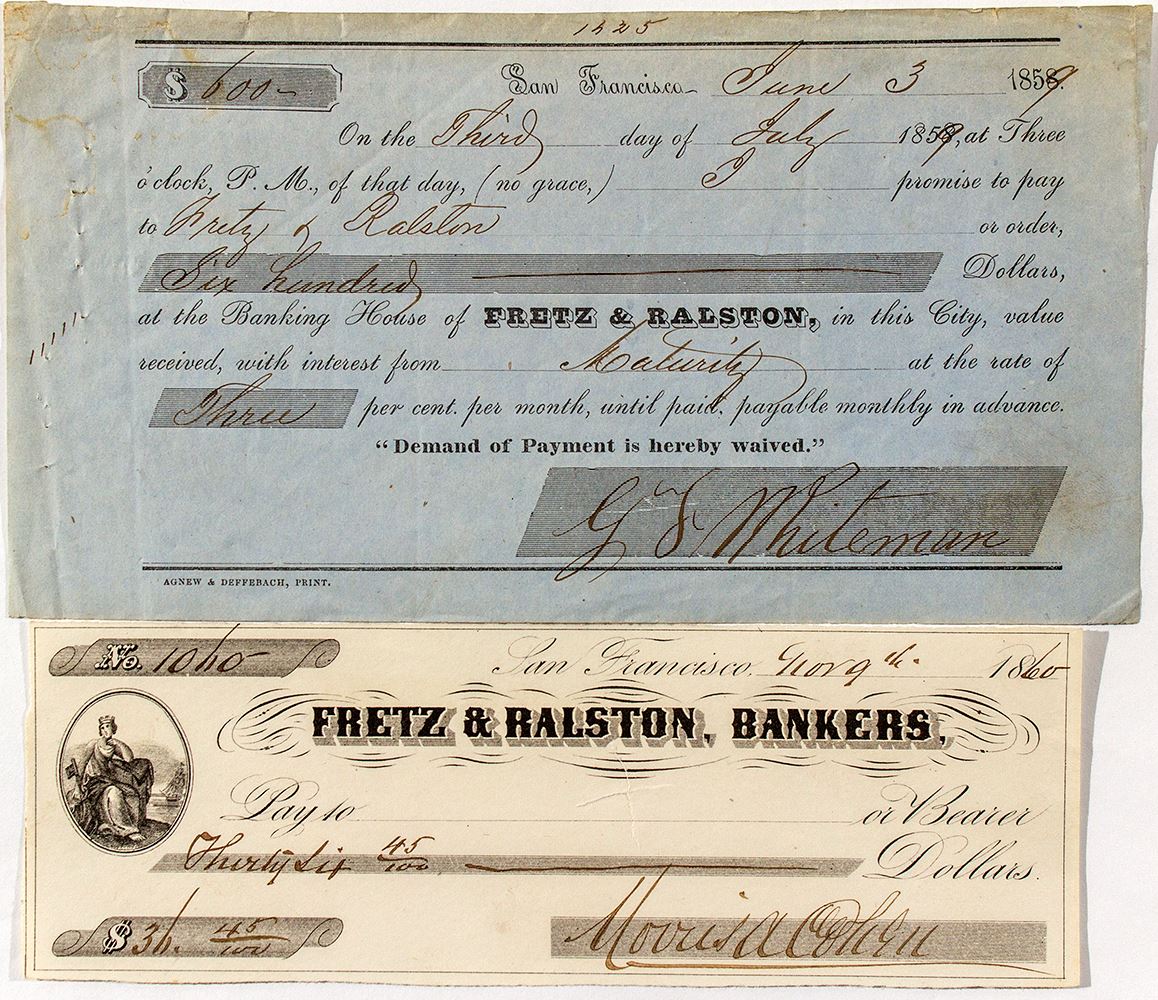 1225
$ 600 - San Francisco June 3 1859.
On the Third day of July 1859, at Three
o'clock, P. M., of that day, (no grace,) I promise to pay
to Fretz & Ralston or order,
Six hundred Dollars,
at the Banking House of FRETZ & RALSTON, in this City, value
received, with interest from Maturity at the rate of
Three per cent. per month, until paid, payable monthly in advance.
"Demand of Payment is hereby waived."
Whiteman
AGNEW & DEFFEBACH, PRINT.
No. 1060 San Francisco, Nov 9th. 1860
FRETZ & RALSTON, BANKERS,
Pay to or Bearer
Thirty Six 45/100 Dollars.
$ 36. 45/100 Morris Cohen